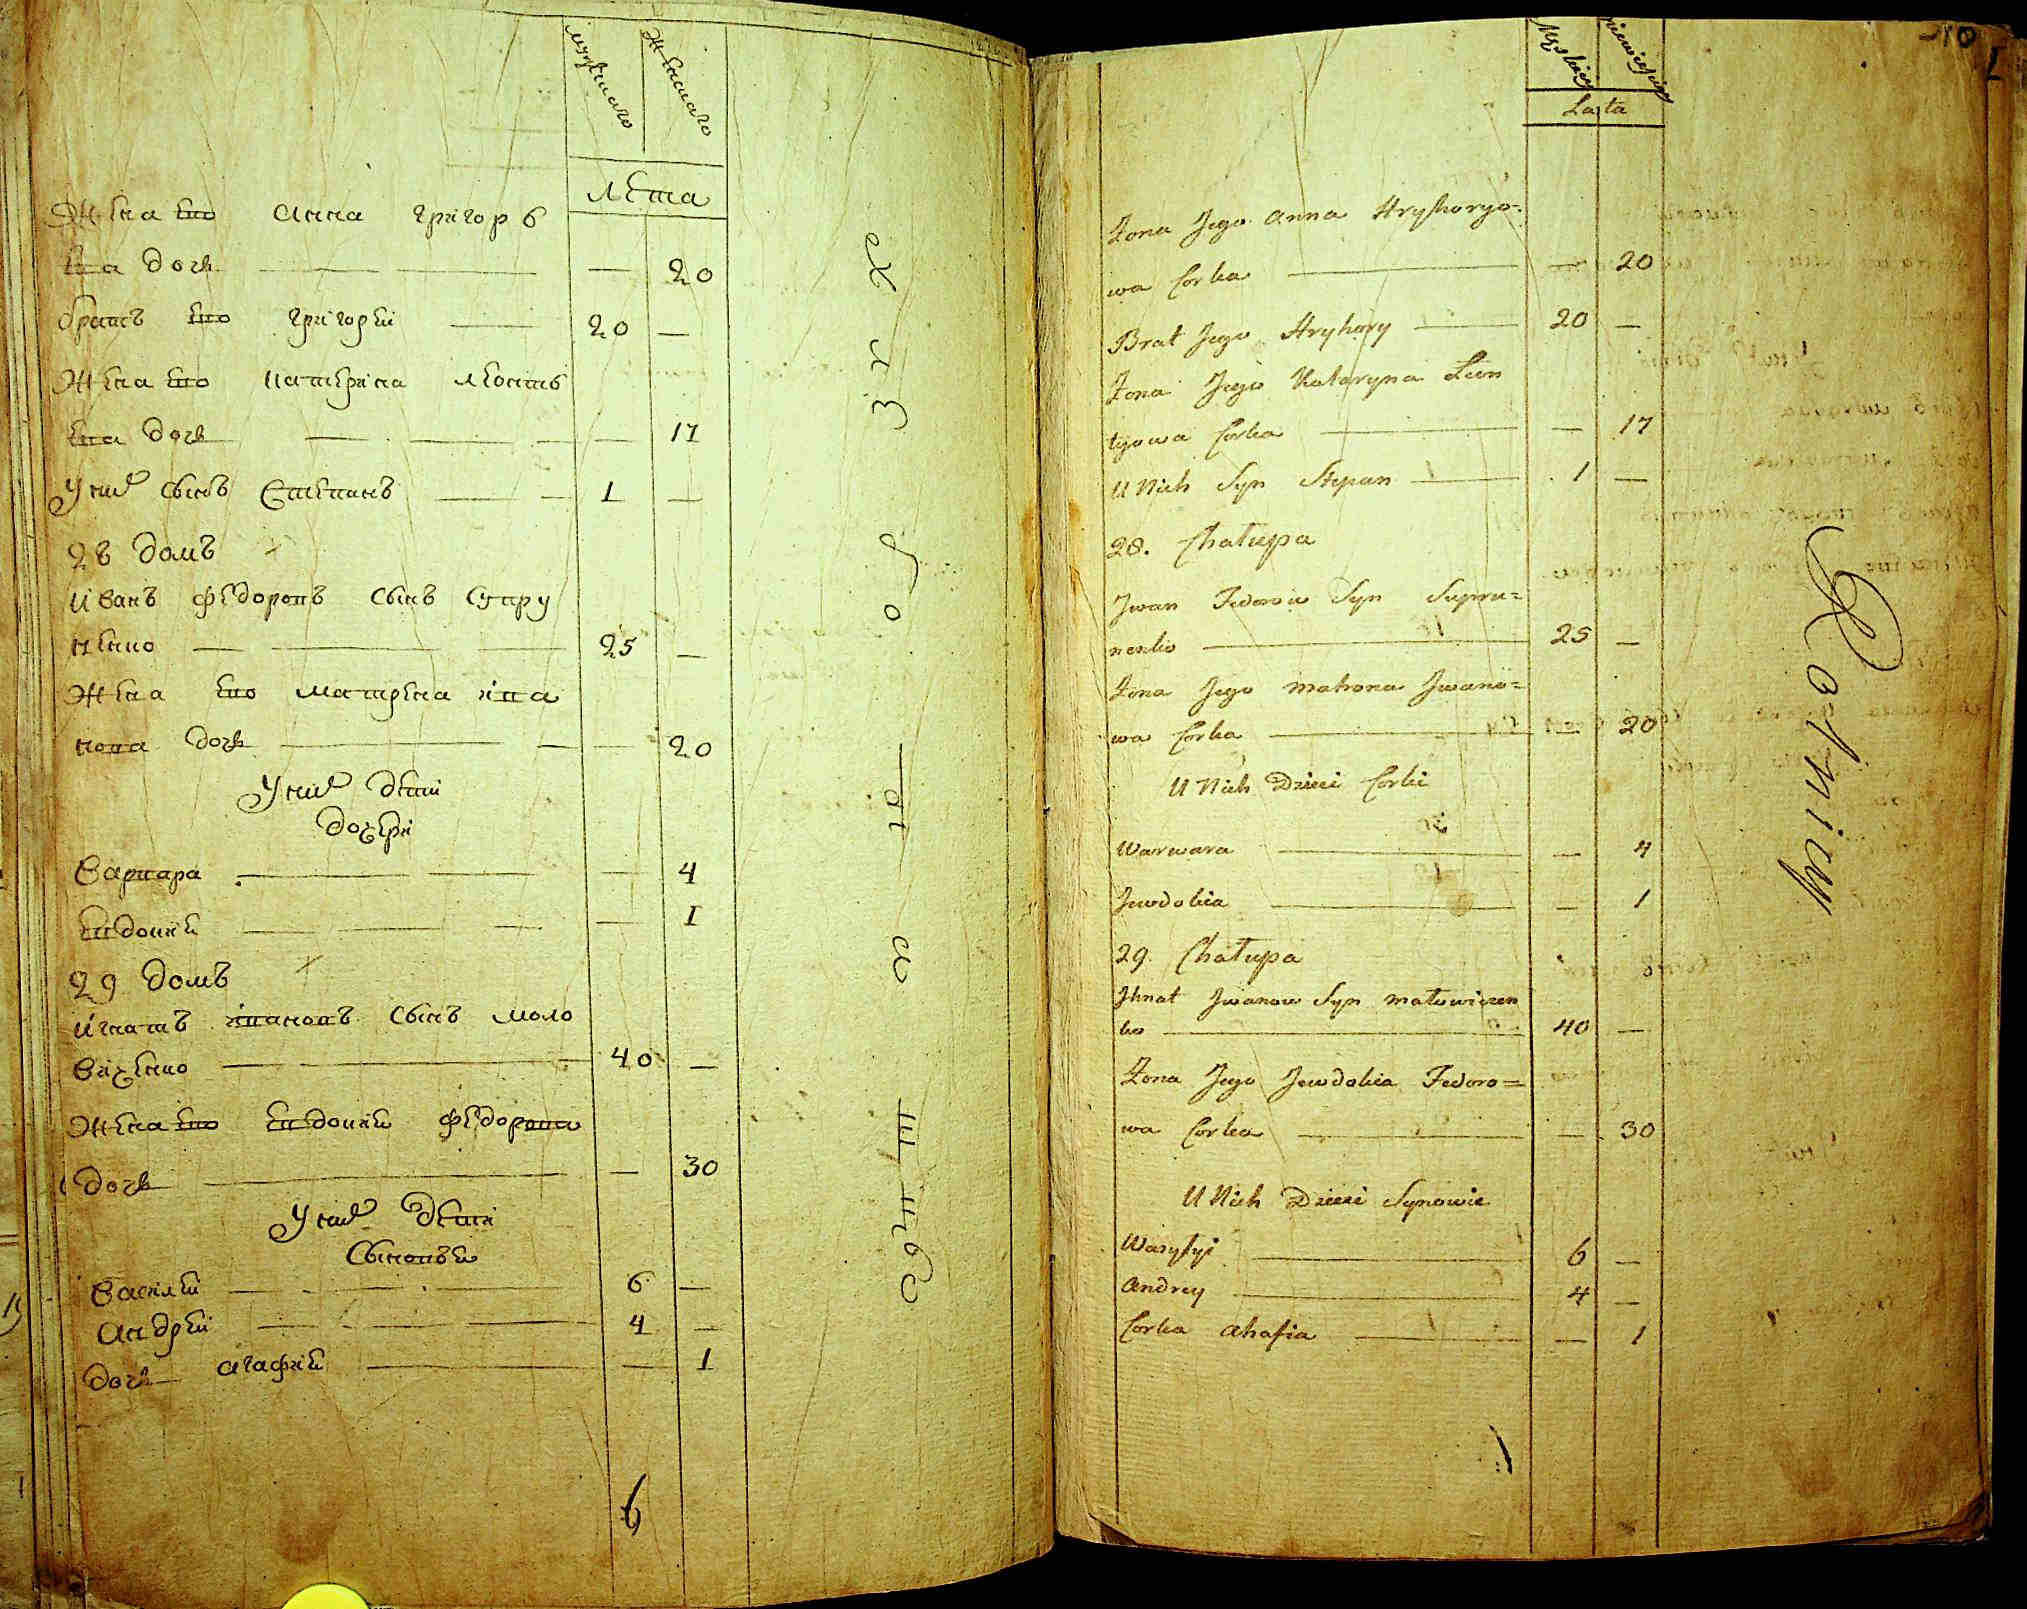 мужчинаго
женсаго
лета
Жена его Анна Григорь
ева дочь 20
братъ его григорей 20 —
Жена его катерина леонть
ева дочь — 17
У них сынъ Степанъ 1 —
28 домъ
иванъ федоровъ сынъ Супру
ненко 25 —
Жена его матрена ива
нова дочь — 20
У них дети
дочери
варвара — 4
евдокия — 1
29 домъ
игнатъ ивановъ сынъ моло
виченко 40 —
Жена его евдокия федорова
дочь — 30
У них дети
Сыновья
василей 6 —
андрей 4 —
дочь агафия — 1
6
10
Męskiey
Niewieściey
Lata
Żona Jego Anna Hryhoryo-
wa Corka — 20
Brat Jego Hryhory 20 —
Żona Jego Kataryna Leon
tyowa Corka — 17
U Nich Syn Stepan 1 —
28. Chałupa
Jwan Fedorow Syn Supru=
nenko 25 —
Żona Jego Matrona Jwano=
wa Corka — 20
U Nich Dzieci Corki
Warwara — 4
Jewdokia — 1
29. Chałupa
Jhnat Jwanow Syn Małowiczen
ko 40 —
Żona Jego Jewdokia Fedoro=
wa Corka — 30
U Nich Dzieci Synowie
Wasylyi 6 —
Andrey 4 —
Corka Ahafia — 1
Rolnicy